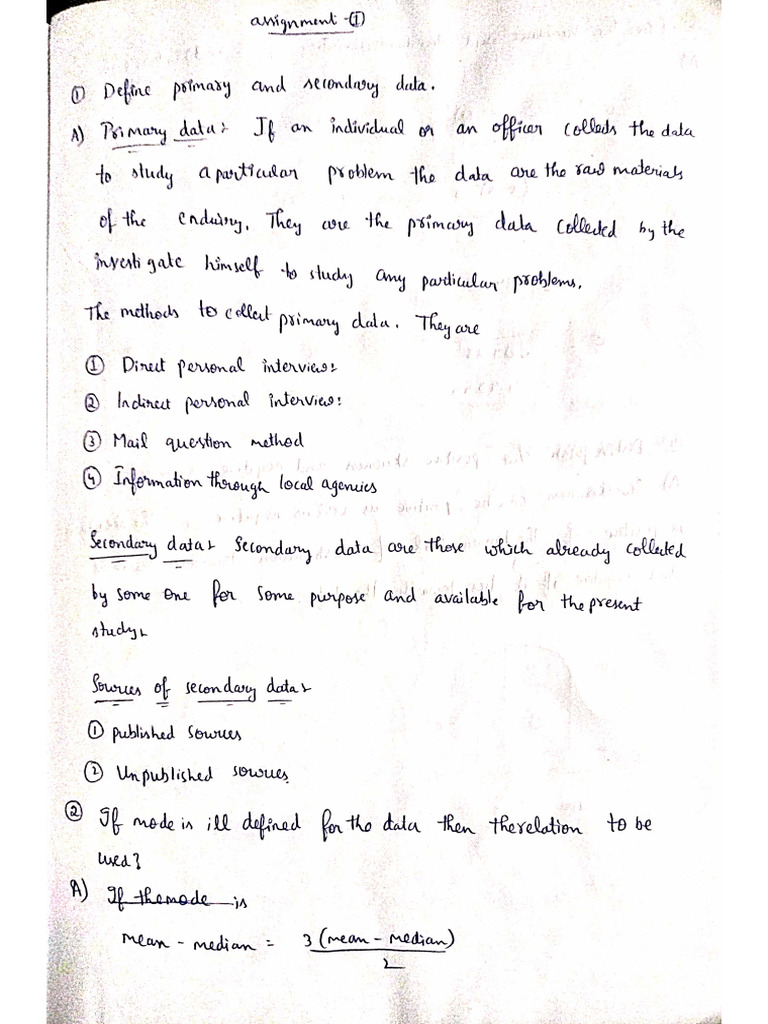 assignment - ①
① Define primary and secondary data.
A) Primary data:- If an individual or an officer collects the data
to study a particular problem the data are the raw materials
of the enduiry. They are the primary data collected by the
investigate himself to study any particular problems.
The methods to collect primary data. They are
① Direct personal interview:
② Indirect personal interview:
③ Mail question method
④ Information through local agencies
Secondary data:- Secondary data are those which already collected
by some one for some purpose and available for the present
study:-
Sources of secondary data:-
① published sources
② Unpublished sources
② If mode is ill defined for the data then the relation to be
used?
A) If the mode is
mean - median = 3 (mean - median)
2